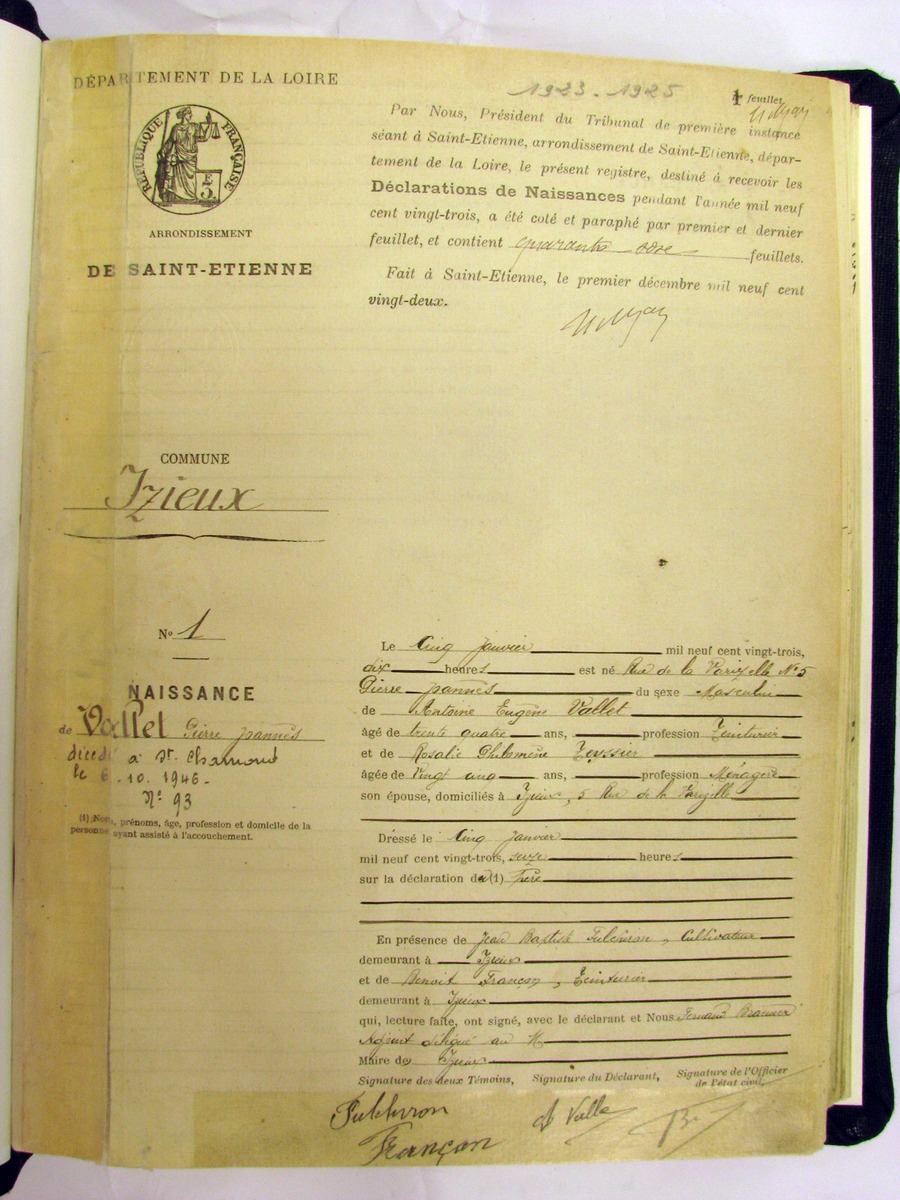 DÉPARTEMENT DE LA LOIRE
RÉPUBLIQUE FRANÇAISE
ARRONDISSEMENT
DE SAINT-ETIENNE
1923-1925
1 feuillet
Par Nous, Président du Tribunal de première instance
séant à Saint-Etienne, arrondissement de Saint-Etienne, dépar-
tement de la Loire, le présent registre, destiné à recevoir les
Déclarations de Naissances pendant l'année mil neuf
cent vingt-trois, a été coté et paraphé par premier et dernier
feuillet, et contient quarante feuillets.
Fait à Saint-Etienne, le premier décembre mil neuf cent
vingt-deux.
COMMUNE
Izieux
N° 1
NAISSANCE
de Vallet Pierre Joannès
décédé à St Chamond
le 6-10.1946-
N° 93
(1) Nom, prénoms, âge, profession et domicile de la
personne ayant assisté à l'accouchement.
Le Cinq Janvier mil neuf cent vingt-trois,
dix heures est né Rue de la Varizelle N° 5
Pierre Joannès du sexe Masculin
de Antoine Eugène Vallet
âgé de trente quatre ans, profession Teinturier
et de Rosalie Philomène Teyssier
âgée de Vingt ans, profession Ménagère
son épouse, domiciliés à Izieux, 5 Rue de la Varizelle
Dressé le Cinq Janvier
mil neuf cent vingt-trois, seize heures
sur la déclaration du (1) Père
En présence de Jean Baptiste Fulchiron, Cultivateur
demeurant à Izieux
et de Benoit Françon, Teinturier
demeurant à Izieux
qui, lecture faite, ont signé, avec le déclarant et Nous Fernand
Adjoint délégué au M
Maire de Izieux
Signature des deux Témoins,
Signature du Déclarant,
Signature de l'Officier
de l'état civil,
Fulchiron
Françon
A Valle